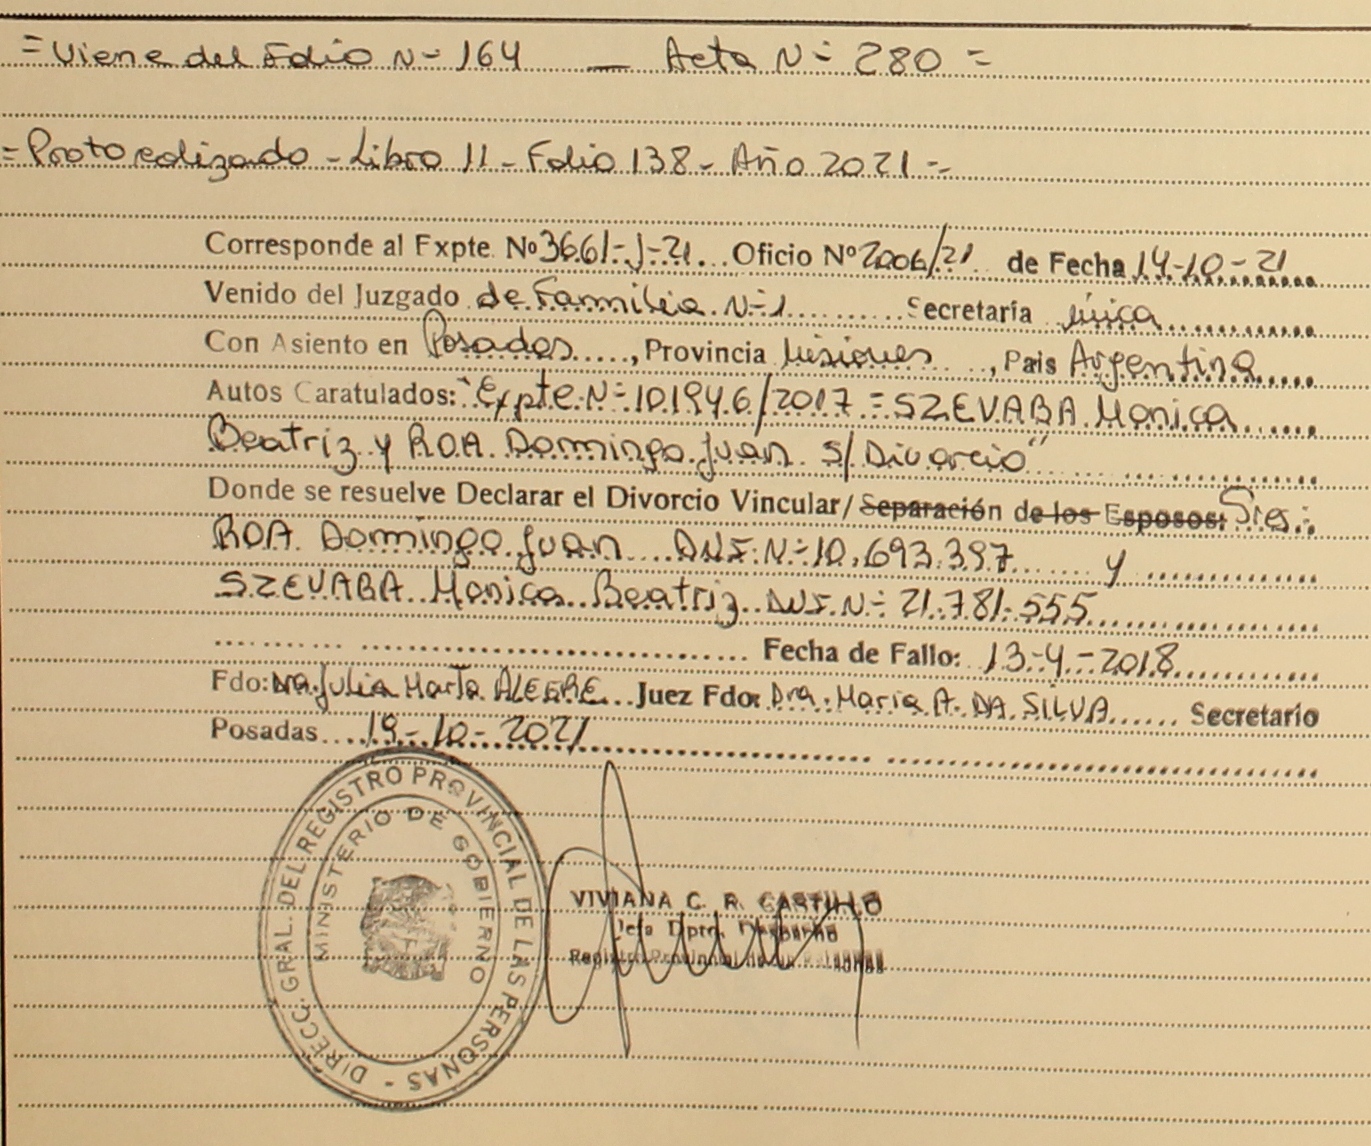 =Viene del Folio N- 164 — Acta N- 280 =
=Protocolizado - Libro 11 - Folio 138 - Año 2021 -
Corresponde al Expte. Nº 3661-J-21 Oficio Nº 2006/21 de Fecha 14-10-21
Venido del Juzgado de Familia N-1 Secretaría única
Con Asiento en Posadas, Provincia Misiones, Pais Argentina
Autos Caratulados: "Expte N- 101946/2017 = SZEVABA Monica
Beatriz y ROA Domingo Juan s/Divorcio"
Donde se resuelve Declarar el Divorcio Vincular/ Separación de los Esposos: Sres.:
ROA Domingo Juan DNI N- 10.693.397 y
SZEVABA Monica Beatriz DNI N- 21.781.555
Fecha de Fallo: 13-4-2018
Fdo: Dra. Julia Marta ALEGRE Juez Fdo: Dra. Maria A. DA SILVA Secretario
Posadas 19-10-2021
DIRECC. GRAL. DEL REGISTRO PROVINCIAL DE LAS PERSONAS -
MINISTERIO DE GOBIERNO
VIVIANA C. R. CASTILLO
Jefa Dpto. Despacho
Registro Provincial de las Personas